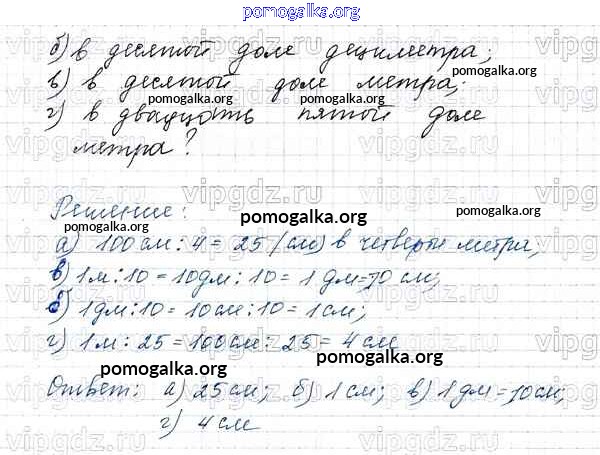 pomogalka.org
б) в десятой доле дециметра;
в) в десятой доле метра;
pomogalka.org
pomogalka.org
pomogalka.org
г) в двадцать пятой доле
метра?
pomogalka.org
vipgdz.ru vipgdz.ru
Решение:
pomogalka.org
pomogalka.org
а) 100 см : 4 = 25 (см) в четверти метра;
в) 1 м : 10 = 10 дм : 10 = 1 дм = 10 см;
б) 1 дм : 10 = 10 см : 10 = 1 см;
г) 1 м : 25 = 100 см : 25 = 4 см
pomogalka.org
pomogalka.org
Ответ: а) 25 см; б) 1 см; в) 1 дм = 10 см;
г) 4 см
vipgdz.ru vipgdz.ru